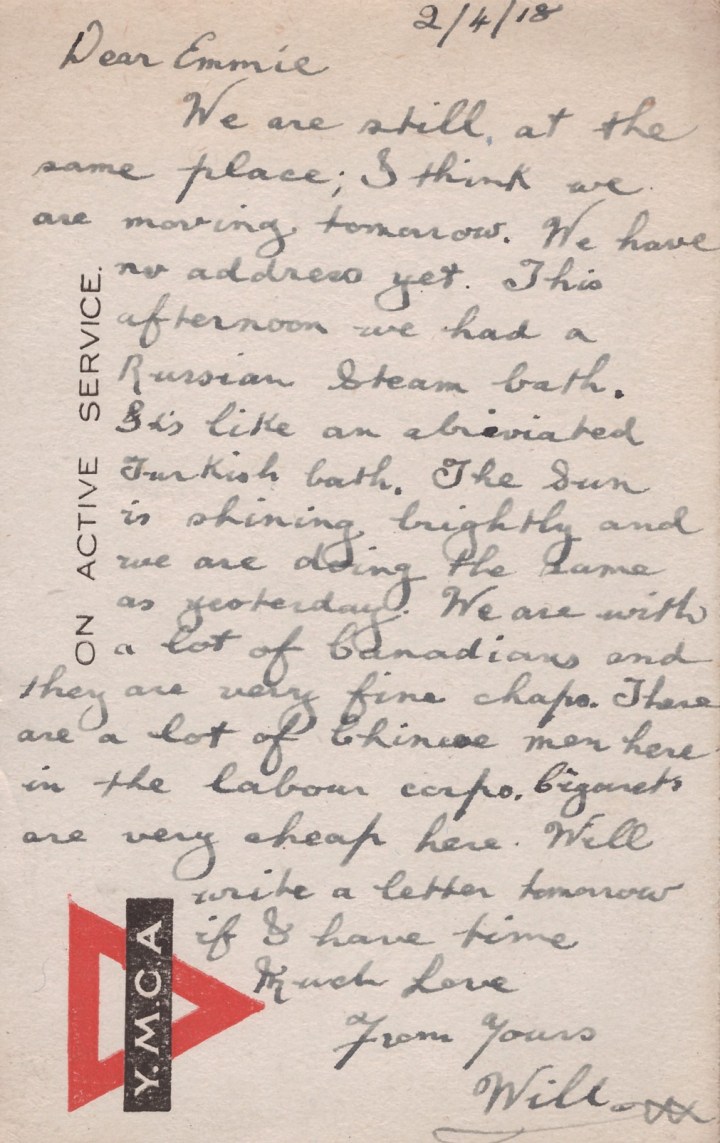 2/4/18
Dear Emmie
We are still, at the
same place; I think we
are moving tomorrow. We have
no address yet. This
afternoon we had a
Russian Steam bath.
It's like an abreviated
Turkish bath. The Sun
is shining brightly and
we are doing the same
as yesterday. We are with
a lot of Canadians and
they are very fine chaps. There
are a lot of Chinese men here
in the labour corps. Cigarets
are very cheap here. Will
write a letter tomorrow
if I have time
Much Love
From Yours
Will xx
ON ACTIVE SERVICE.
Y.M.C.A